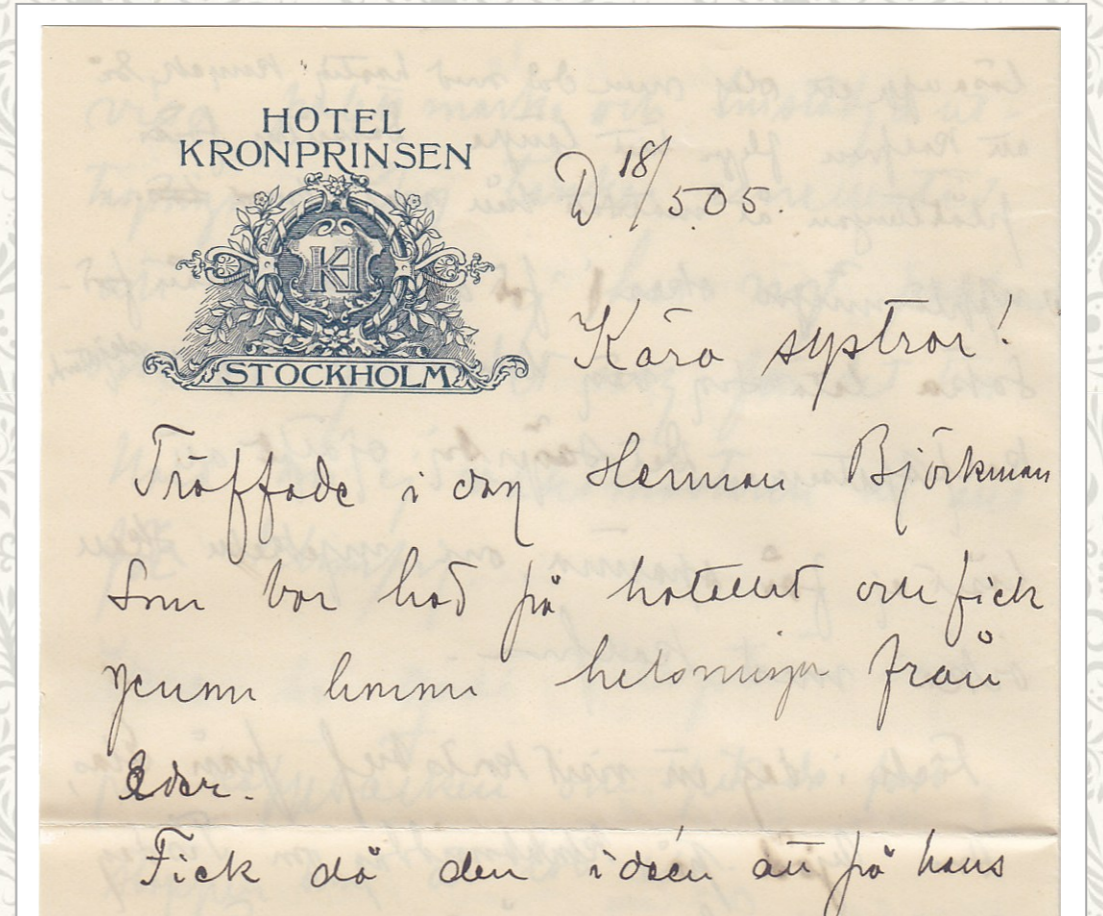 HOTEL
KRONPRINSEN
KH
STOCKHOLM
D 18/5.05.
Kära systrar!
Träffade i dag Herman Björkman
som var här på hotellet och fick
genom honom helsningar från
Eder.
Fick då den idéen att på hans